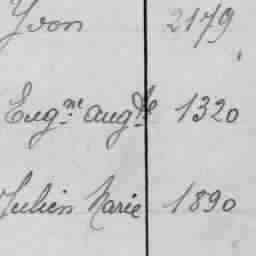 Yvon 2179
Eug.ne Aug.te 1320
Julien Marie 1890